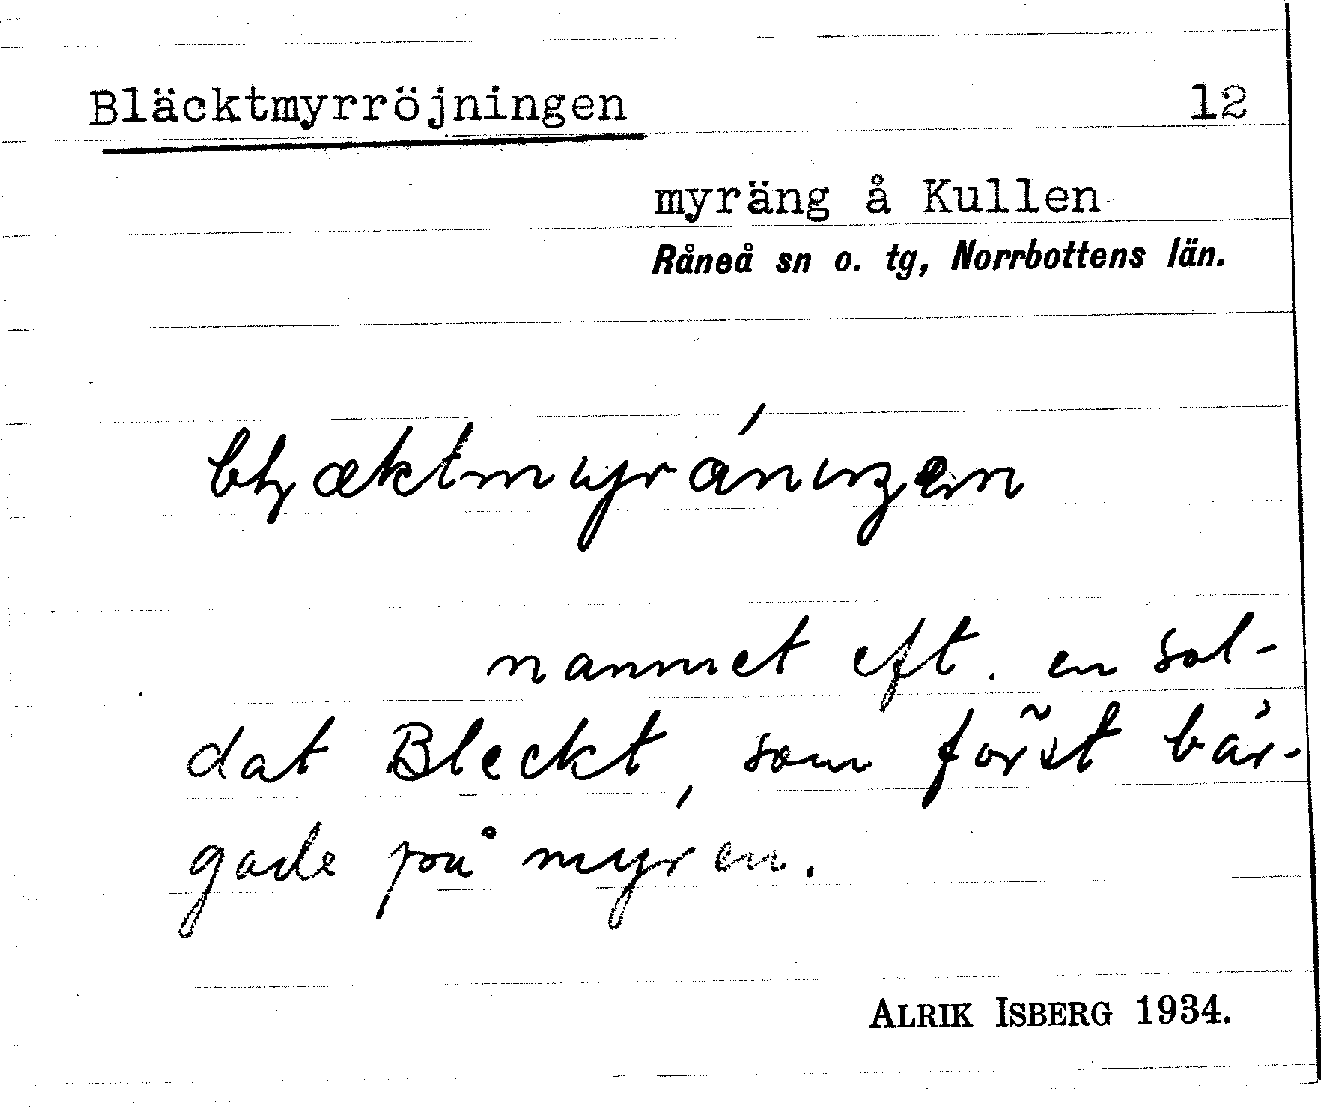 Bläcktmyrröjningen 12
myräng å Kullen
Råneå sn o. tg, Norrbottens län.
namnet eft. en sol-
dat Bleckt, som först bär-
gade på myren.
ALRIK ISBERG 1934.